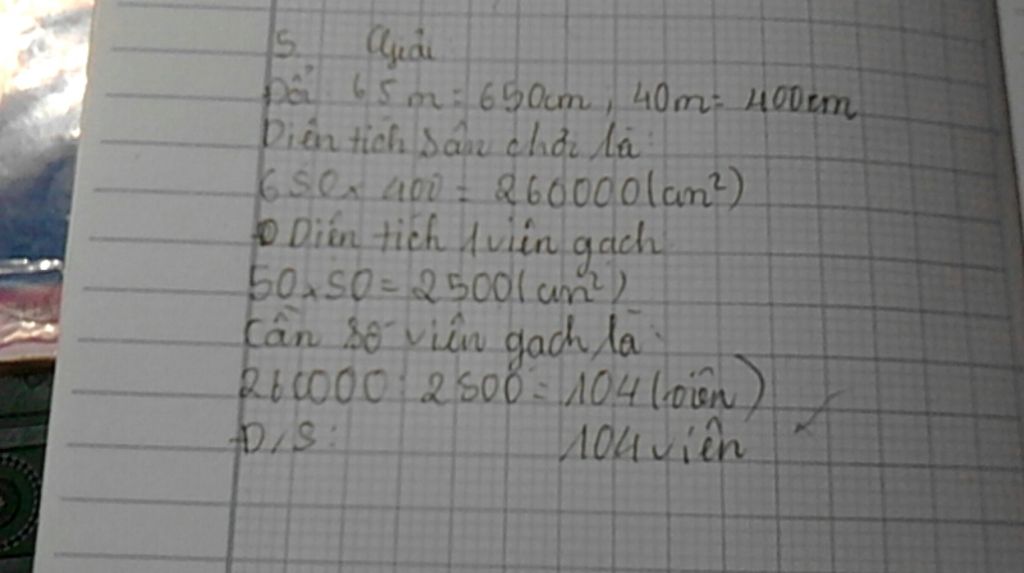 5. Giải
Đổi 65m = 650cm, 40m = 400cm
Diện tích sân chơi là:
650 x 400 = 260000(cm²)
Diện tích 1 viên gạch
50 x 50 = 2500(cm²)
Cần số viên gạch là:
260000 : 2500 = 104 (viên)
Đ/S: 104 viên